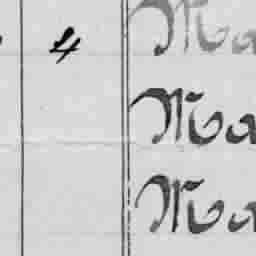 4 Ma
Ma
Ma